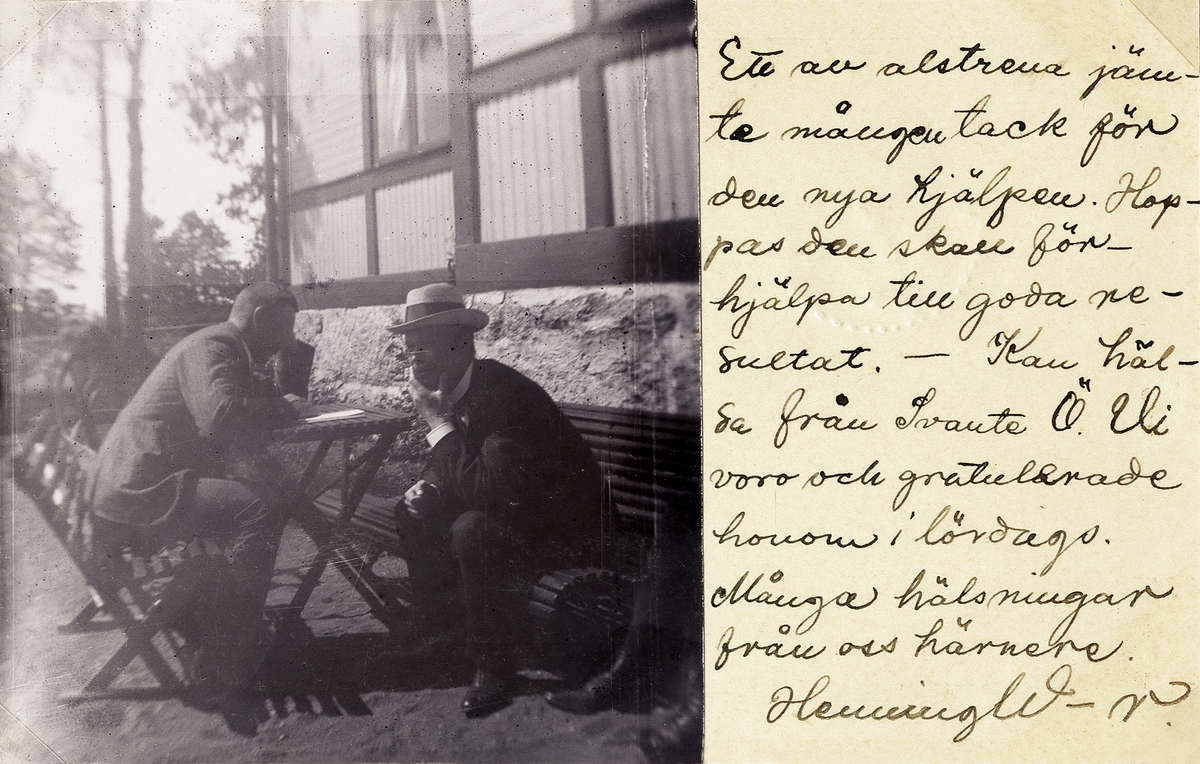 Ett av alstrena jäm-
te mången tack för
den nya hjälpen. Hop-
pas den skall för-
hjälpa till goda re-
sultat. — Kan häl-
sa från Svante Ö. Vi
voro och gratulerade
honom i lördags.
Många hälsningar
från oss härnere.
Henning W-r.